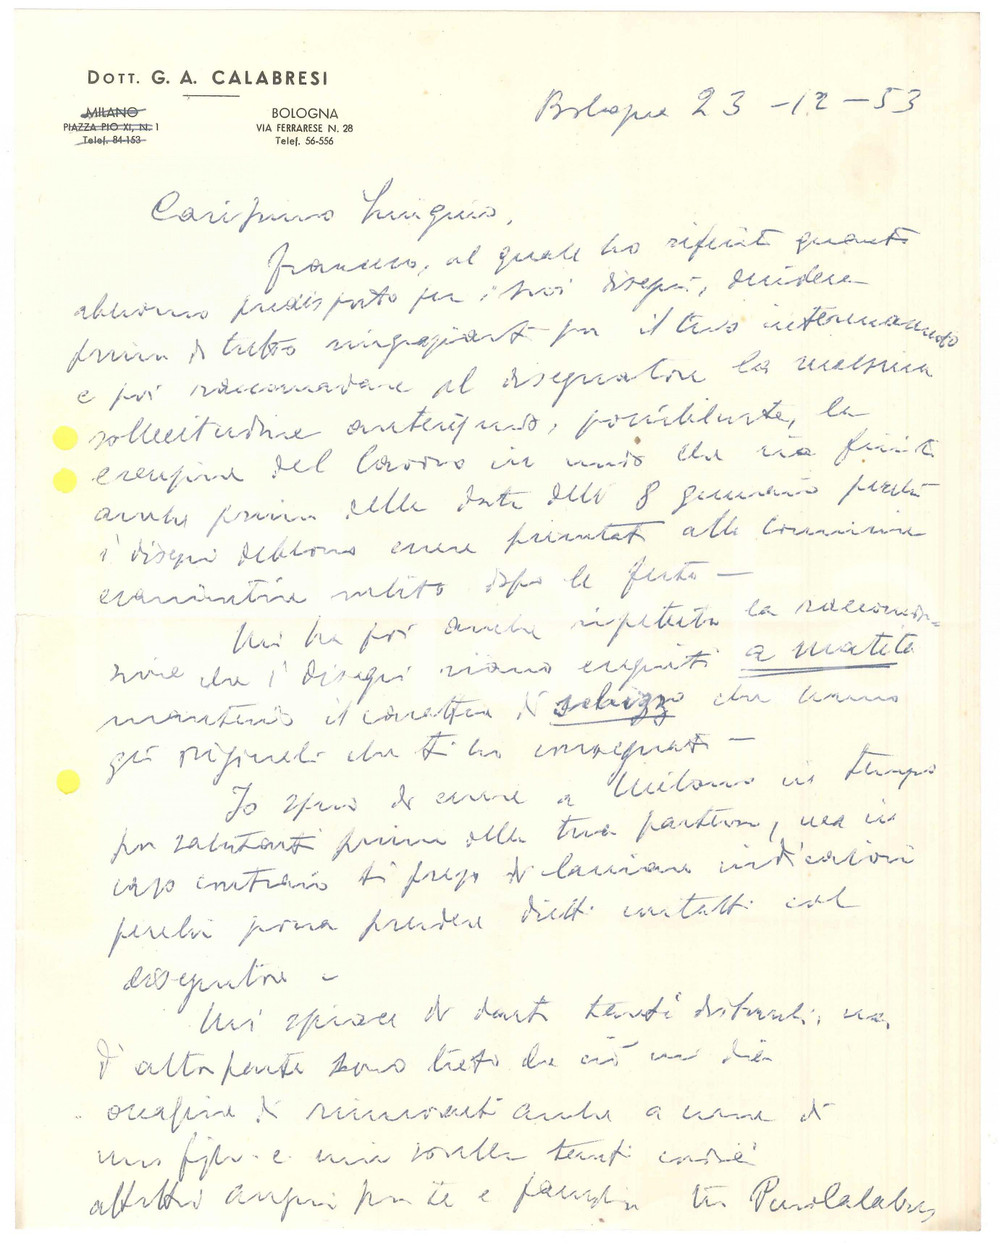 DOTT. G. A. CALABRESI
MILANO
PIAZZA PIO XI, N. 1
Telef. 84-153
BOLOGNA
VIA FERRARESE N. 28
Telef. 56-556
Bologna 23-12-53
Carissimo
Francesco, al quale ho riferito quanto
abbiamo predisposto per i suoi disegni, desidera
prima di tutto ringraziarti per il tuo interessamento
e poi raccomandare al disegnatore la massima
sollecitudine anticipando, possibilmente, la
esecuzione del lavoro in modo che sia finito
anche prima della data dello 8 gennaio perché
i disegni debbono essere presentati alla commissione
esaminatrice subito dopo le feste —
Mi ha poi anche ripetuto la raccomanda=
zione che i disegni siano eseguiti a matita
mantenendo il carattere di schizzo che hanno
gli originali che ti ho consegnati —
Io spero di essere a Milano in tempo
per salutarti prima della tua partenza, ma in
caso contrario ti prego di lasciare indicazioni
perché possa prendere diretti contatti col
disegnatore —
Mi spiace di darti tanti disturbi, ma,
d'altra parte sono lieto che ciò mi dia
occasione di rinnovarti anche a nome di
mio figlio e mia sorella tanti
affettuosi auguri per te e famiglia tuo Calabresi